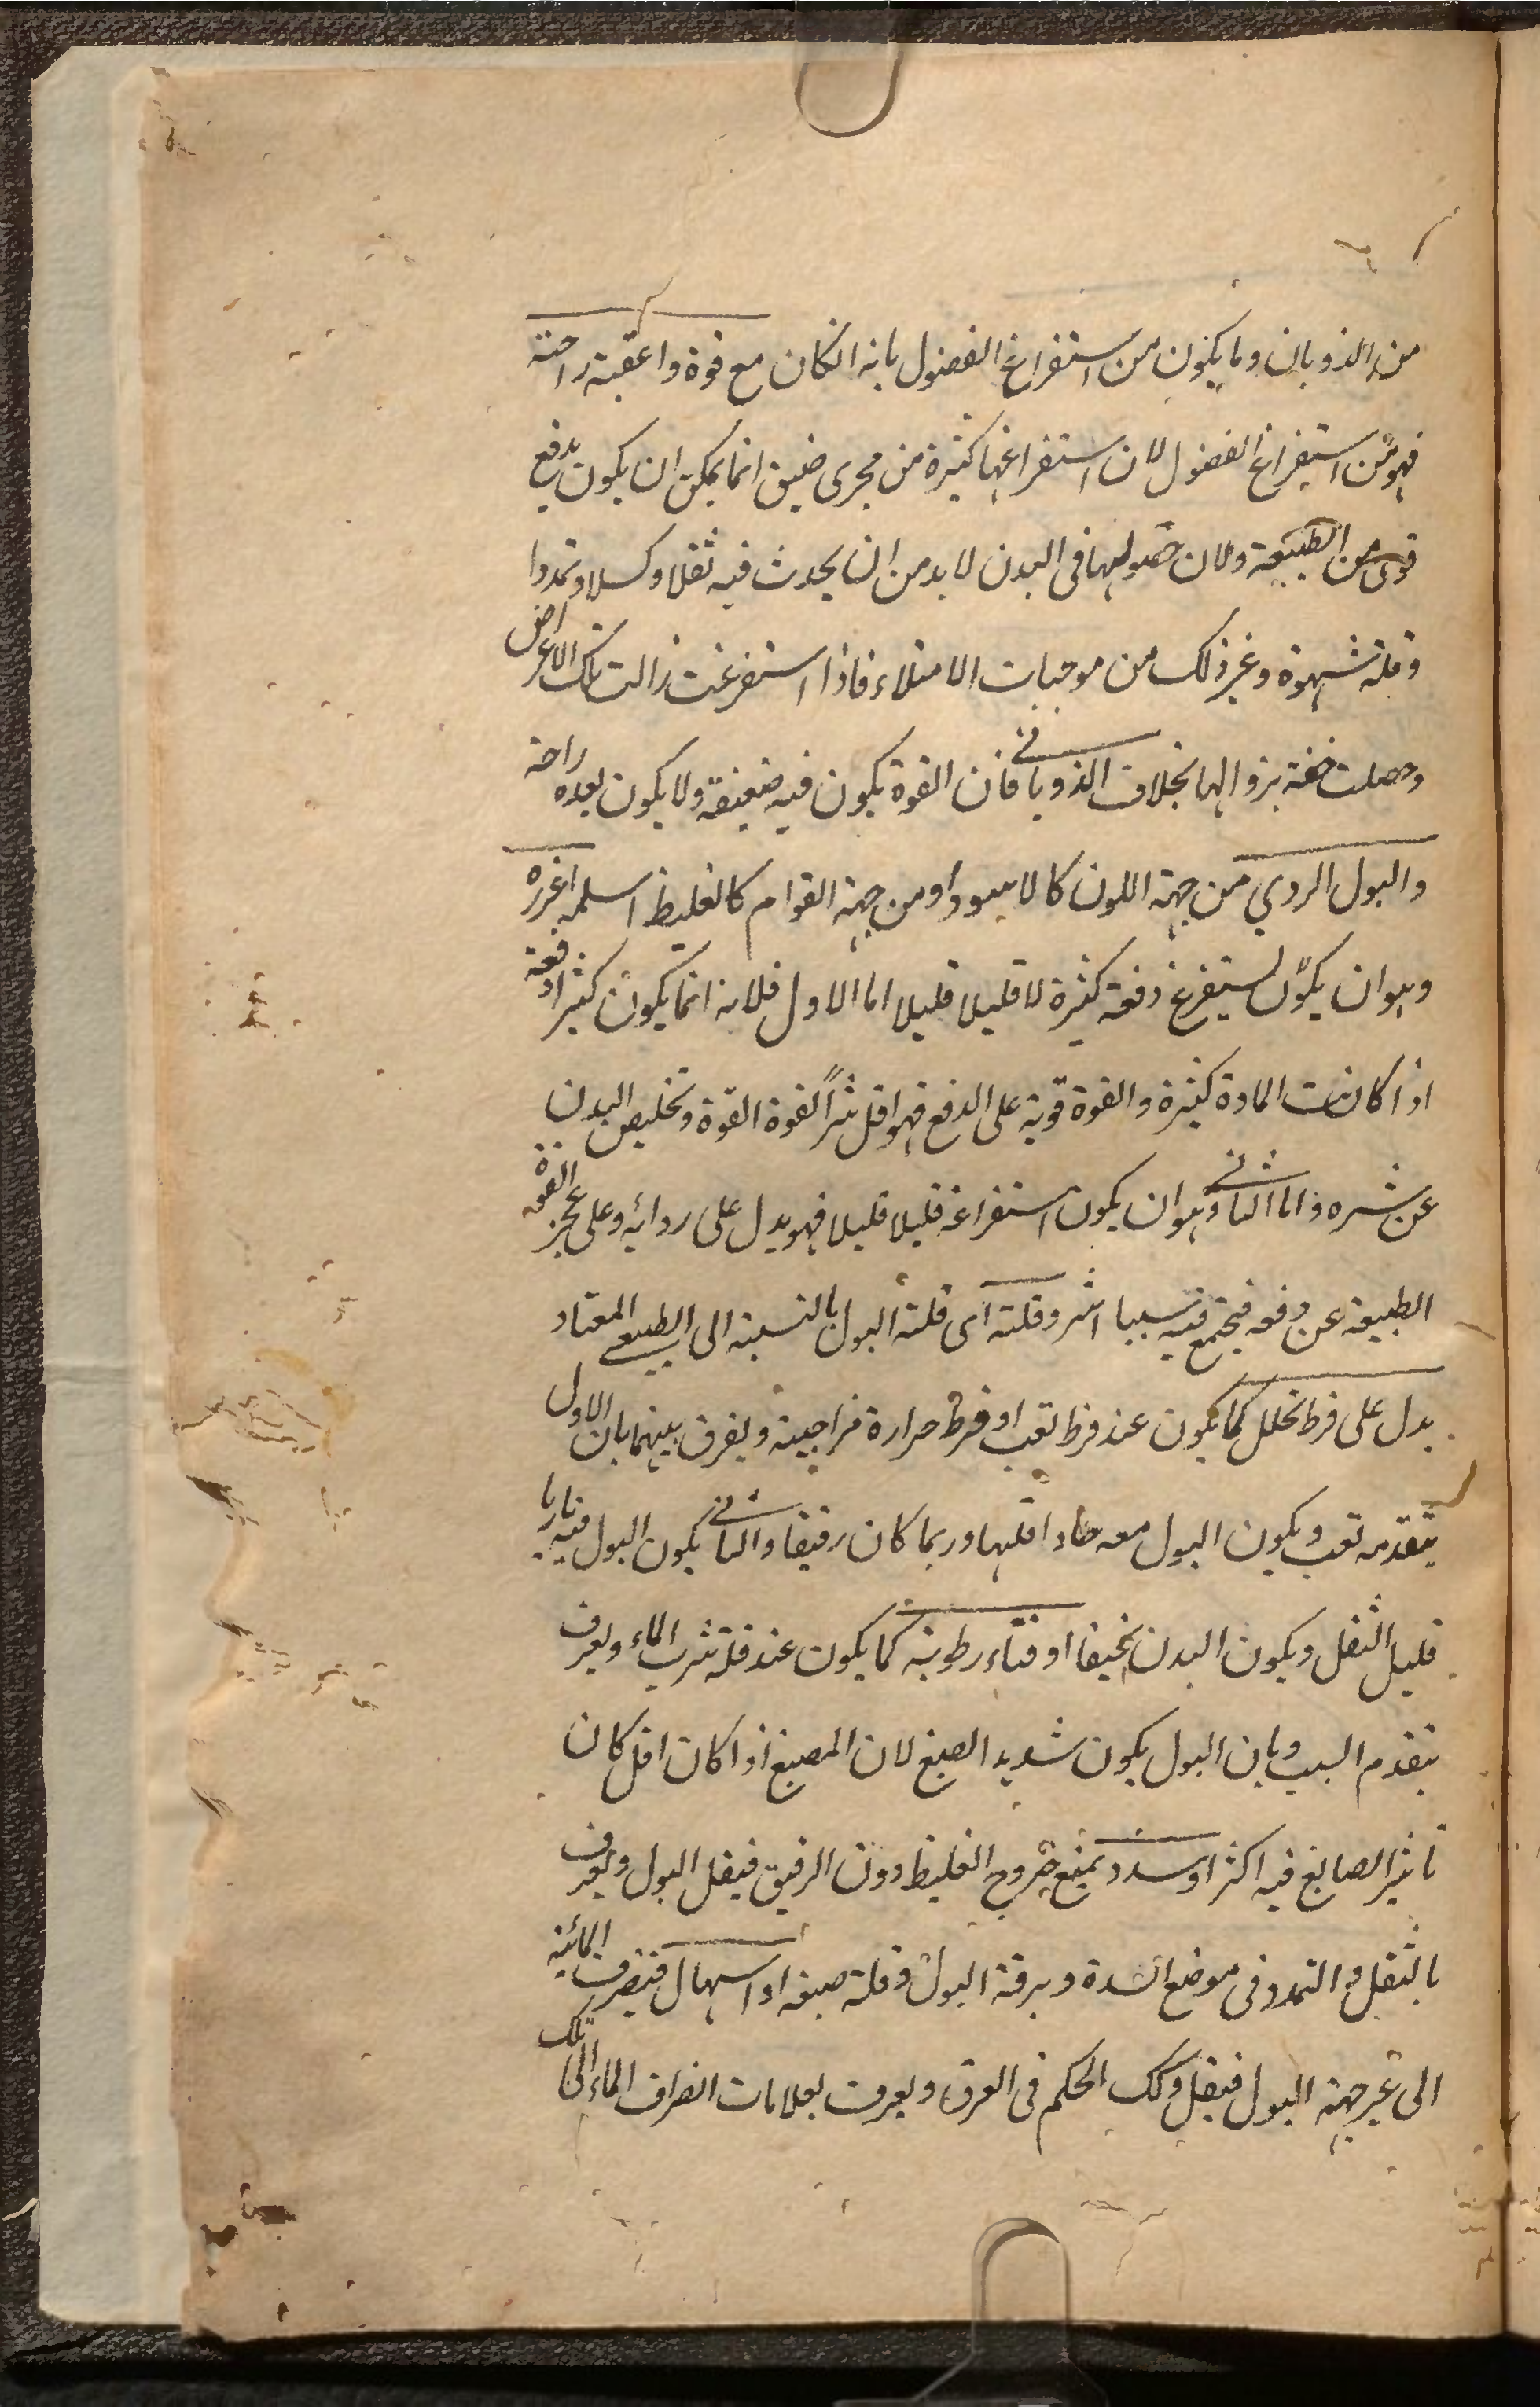 من الذوبان وما يكون من استفراغ الفضول بانه انكان مع قوة واعقبة راحة
فهو من استفراغ الفضول لان استفراغها كثيرة من مجرى ضيق انما يمكن ان يكون بدفع
قوى من الطبيعة ولان حصولها فى البدن لابد من ان يحدث فيه ثقلا وكسلا وتمددا
وقلة شهوة وغير ذلك من موجبات الامتلاء فاذا استفرغت زالت تلك الاعراض
وحصلت خفة بزوالها بخلاف الذوبانى فان القوة يكون فيه ضعيفة ولا يكون بعده راحة
والبول الردي من جهة اللون كالاسود او من جهة القوام كالغليظ اسلمه اغزره
وهو ان يكون يستفرغ دفعة كثيرة لا قليلا قليلا اما الاول فلانه انما يكون كثيرا دفعة
اذا كانت المادة كثيرة والقوة قوية على الدفع فهو اقل شرا لقوة القوة وتخليص البدن
عن شره واما الثانى وهو ان يكون استفراغه قليلا قليلا فهو يدل على رداءته وعلى عجز القوة
الطبيعة عن دفعه فيجتمع فيه سببا اشر وقلته اى قلة البول بالنسبة الى الطبيعى المعتاد
يدل على فرط تحلل كما يكون عند فرط تعب او فرط حرارة مزاجية ويفرق بينهما بان الاول
يتقدمه تعب ويكون البول معه حادا ملتهبا وربما كان رقيقا والثانى يكون البول فيه ناريا
قليل الثفل ويكون البدن نحيفا او فناء رطوبة كما يكون عند قلة شرب الماء ويعرف
بتقدم السبب وبان البول يكون شديد الصبغ لان المصبغ اذا كان اقل كان
تاثير الصابغ فيه اكثر او سدد يمنع خروج الغليظ دون الرقيق فيقل البول ويعرف
بالثقل والتمدد فى موضع السدة وبرقة البول وقلة صبغه او اسهال فتنصرف المائية
الى غير جهة البول فيقل وكك الحكم فى العرق ويعرف بعلامات انصراف الماء الى تلك